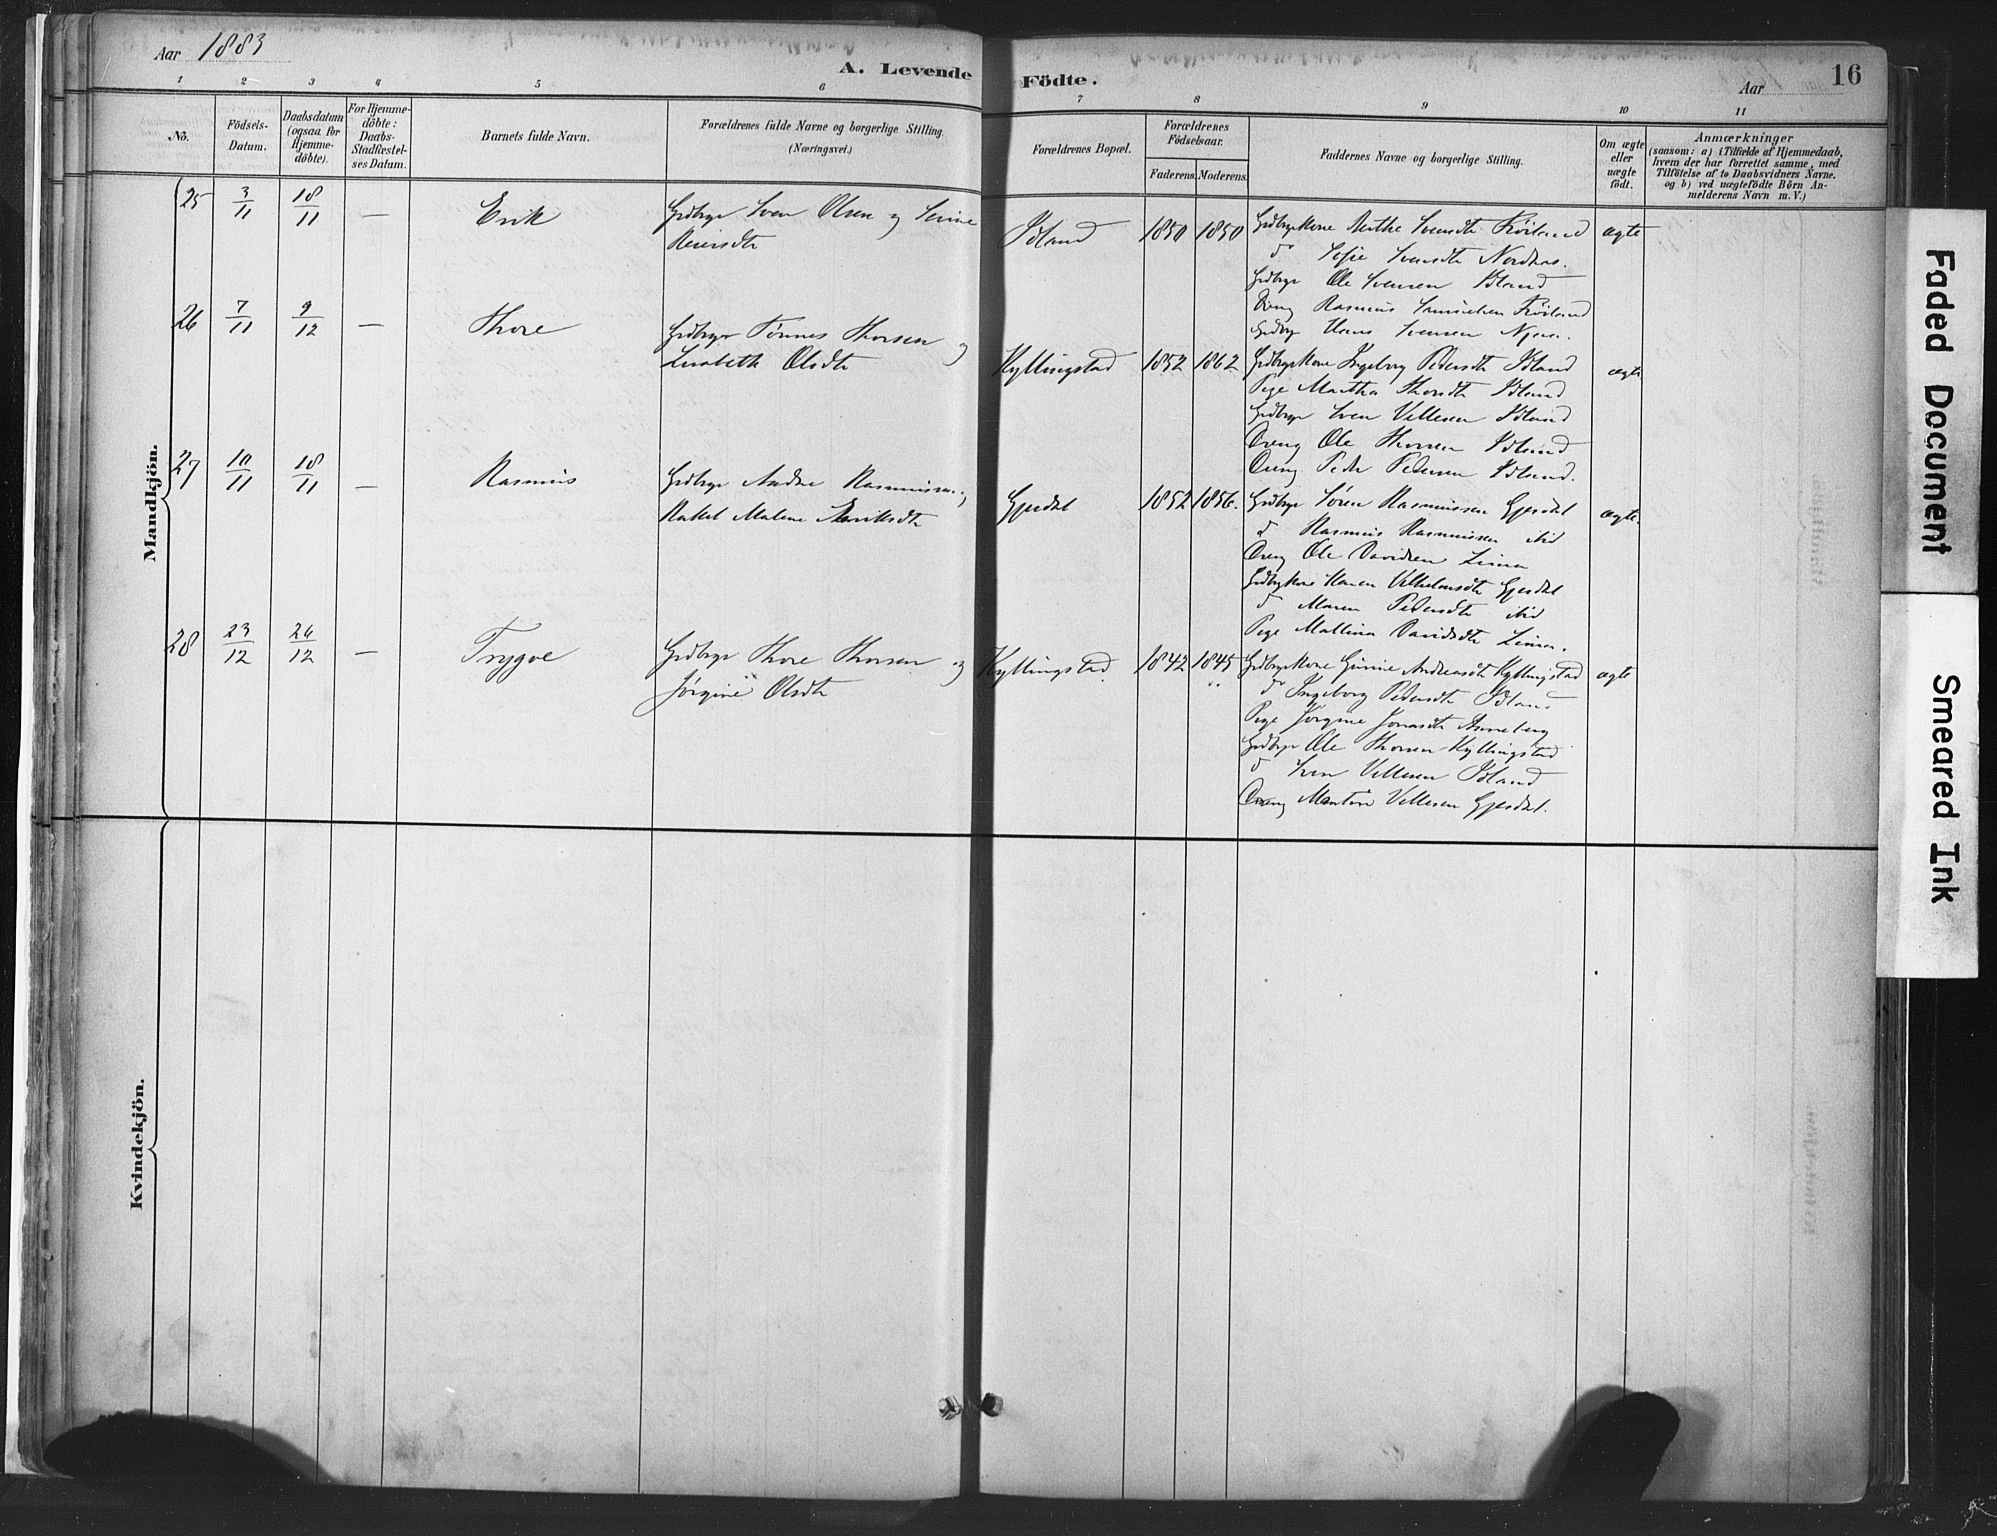 Aar 1883
A. Levende Födte.
Aar
16
1 2 3 4 5 6 7 8 9 10 11
No.
Födsels-Datum.
Daabsdatum (ogsaa for Hjemme-döbte).
For Hjemme-döbte: Daabs-Stadfæstel-ses Datum.
Barnets fulde Navn.
Forældrenes fulde Navne og borgerlige Stilling.
(Næringsvei.)
Forældrenes Bopæl.
Forældrenes Födselsaar.
Faderens. Moderens.
Faddernes Navne og borgerlige Stilling.
Om ægte eller uægte födt.
Anmærkninger
(saasom: a) i Tilfælde af Hjemmedaab,
hvem der har forrettet samme, med
Tilföielse af to Daabsvidners Navne.
og b) ved uægtefödte Börn An-
melderens Navn m. V.)
Mandkjön.
25 3/11 18/11 — Erik
Grdbrgr Sven Olsen og Serine
Reiersdtr
Idland 1850 1850 ægte
Grdbrgrkone Berthe Svensdtr
do Sofie Svensdtr
Grdbrgr Ole Svensen Idland
Dreng Rasmus
Grdbrgr Hans Svensen
26 7/11 9/12 — Thore
Grdbrgr Tönnes Thorsen og
Lisabeth Olsdtr
Kyllingstad 1852 1862 ægte
Grdbrgrkone Ingeborg Pedersdtr Idland
Pige Martha Thorsdtr Idland
Grdbrgr Sven Villesen Idland
Dreng Ole Thorsen Idland
Dreng Peder Pedersen Idland.
27 10/11 18/11 — Rasmus
Grdbrgr Andre Rasmussen og
Rakel Malene
Gjesdal 1852 1856. ægte.
Grdbrgr Sören Rasmussen Gjesdal
do Rasmus Rasmussen ibid
Dreng Ole Davidsen Lima
Grdbrgrkone Karen Vilhelmsdtr Gjesdal
do Maren Pedersdtr ibid
Pige Mallina Davidsdtr Lima.
28 23/12 26/12 — Trygve
Grdbrgr Thore Thorsen og
Jörgine Olsdtr
Kyllingstad 1842 1845 ægte
Grdbrgrkone Gunne Andreasdtr Kyllingstad
do Ingeborg Pedersdtr Idland
Pige Jörgine Jonasdtr
Grdbrgr Ole Thorsen Kyllingstad
do Sven Villesen Idland
Dreng Martin Villesen Gjesdal.
Kvindekjön.
Faded Document
Smeared Ink